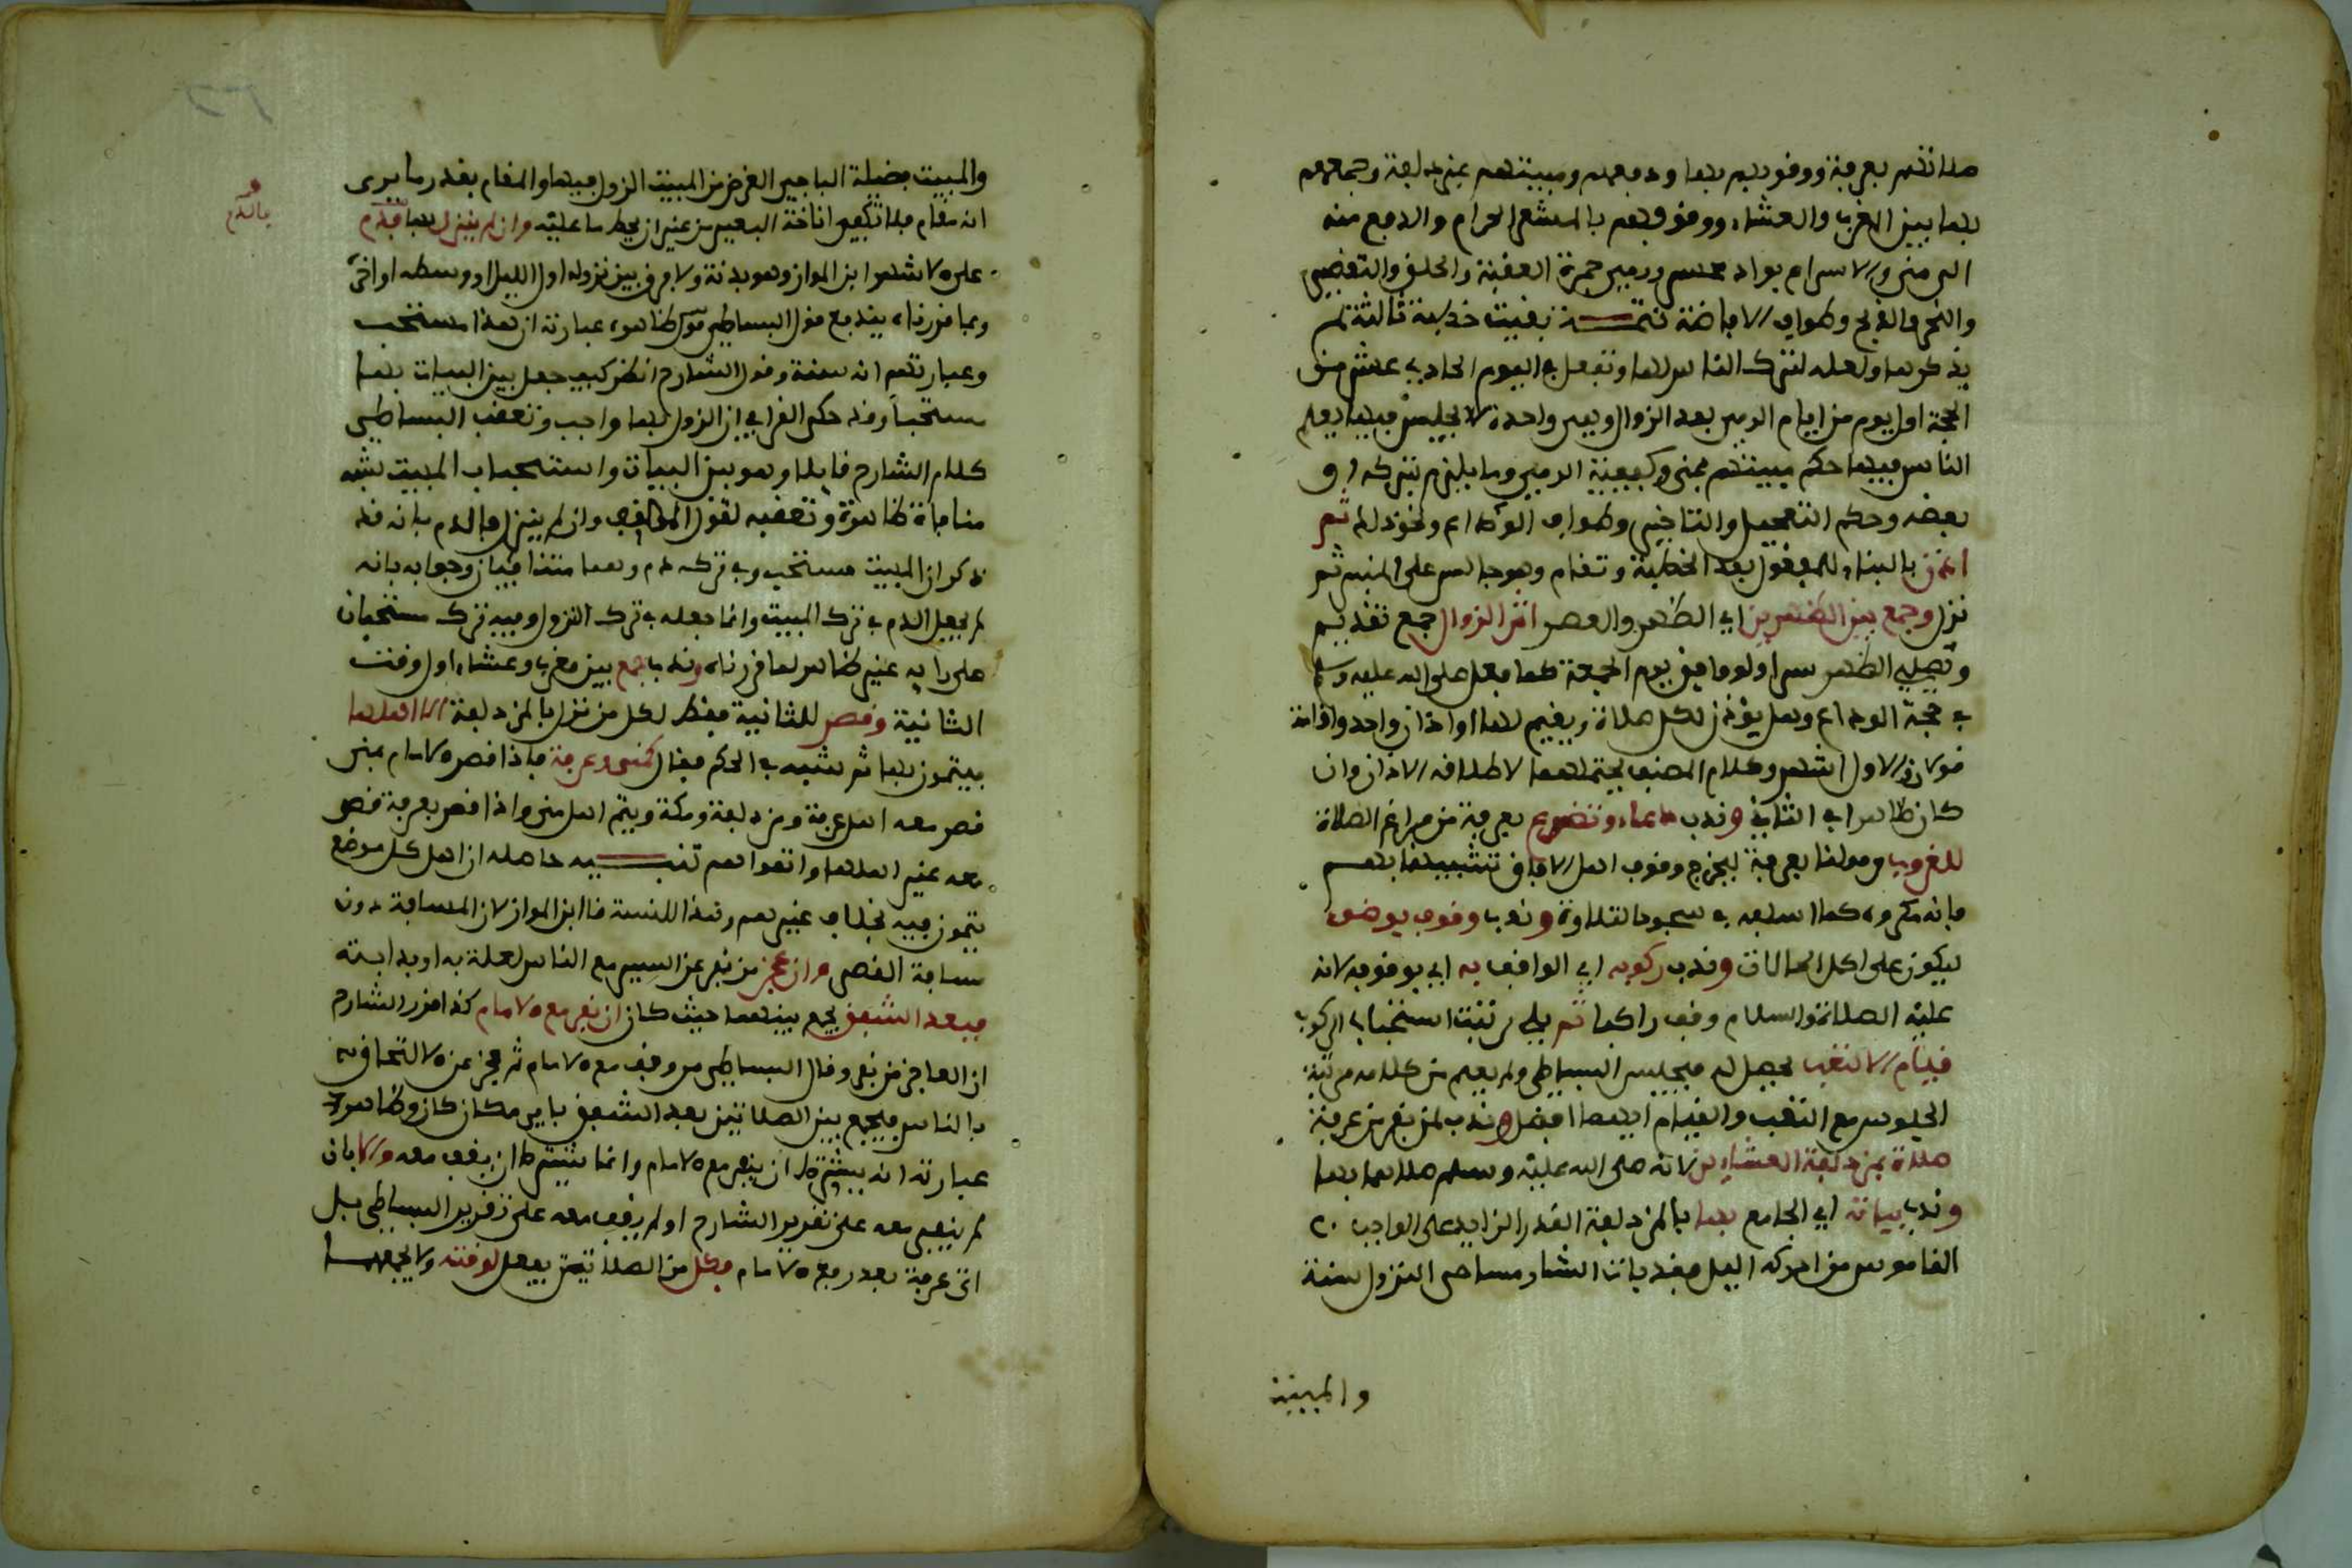 صلاتهم بعرفة ووقوفهم بها ودفعهم ومبيتهم بمزدلفة وجمعهم
بها بين المغرب والعشاء ووقوفهم بالمشعر الحرام والدفع منه
الى منى والاسراع بواد محسر ورمي جمرة العقبة والحلق والتقصير
والنحر والذبح وطواف الافاضة تتمة بقيت خطبة ثالثة لم
يذكرها ولعله لترك الناس لها وتفعل في اليوم الحادي عشر من
الحجة اول يوم من ايام الرمي بعد الزوال وهي واحدة لا يجلس فيها يعلم
الناس فيها حكم مبيتهم بمنى وكيفية الرمي وما يلزم بتركه او
بعضه وحكم التعجيل والتاخير وطواف الوداع ونحو ذلك ثم
اذن بالبناء للمفعول بعد الخطبة وتقام وهو جالس على المنبر ثم
نزل وجمع بين الظهرين اي الظهر والعصر اثر الزوال جمع تقديم
وتصلي الظهر سرا ولو وافق يوم الجمعة كما فعل صلى الله عليه وسلم
في حجة الوداع وهل يؤذن لكل صلاة ويقيم لها او اذان واحد واقامة
قولان والاول اشهر وكلام المصنف يحتملهما لاطلاقه الاذان وان
كان ظاهرا في الثاني وندب دعاء وتضرع بعرفة من فراغ الصلاة
للغروب وقولنا بعرفة ليخرج وقوف اهل الافاق تشبيها بهم
فانه مكروه كما اسلفه في سجود التلاوة وندب وقوف بوضوء
ليكون على اكمل الحالات وندب ركوبه اي الواقف به اي بوقوفه لانه
عليه الصلاة والسلام وقف راكبا ثم يلي رتبة استحباب الركوب
قيام الا لتعب يحصل له فيجلس البساطي ولم يعلم من كلامه مرتبة
الجلوس مع التعب والقيام ايهما افضل وندب لمن نفر من عرفة
صلاة بمزدلفة العشاءين لانه صلى الله عليه وسلم صلاهما بها
وندب بياته اي الجامع بها بالمزدلفة القدر الزايد على الواجب
القاموس من ادركه الليل فقد بات الشارمساحي النزول سنة
والمبيت
والمبيت فضيلة الباجي الغرض من المبيت النزول فيها والمقام بقدر ما يرى
انه مقام فلا تكفي اناخة البعير من غير ان يحط ما عليه وان لم ينزل بها فدم
فالدم
على الاشهر ابن المواز وهو بدنة ولا فرق بين نزوله اول الليل او وسطه او اخره
وبما قررناه يندفع قول البساطي ظاهر عبارته ان هذا مستحب
وعبارتهم انه سنة وقول الشارح انظر كيف جعل بين البيات بها
مستحبا وقد حكى القرافي ان النزول بها واجب وتعقب البساطي
كلام الشارح قايلا وهو بين البيات واستحباب المبيت بشه
منافاة ظاهرة وتعقبه لقول المولف وان لم ينزل فالدم بانه قد
ذكر ان المبيت مستحب وفي تركه دم وهما متنافيان وجوابه بانه
لم يجعل الدم في ترك المبيت وانما جعله في ترك النزول وفيه ترك مستحبان
على رايه غير ظاهر لما قررناه وندب جمع بين مغرب وعشاء اول وقت
الثانية وقصر للثانية فقط لكل من نزل بالمزدلفة الا اهلها
فيتمون بها ثم شبه في الحكم فقال كمنى وعرفة فاذا قصر الامام بمنى
قصر معه اهل عرفة ومزدلفة ومكة ويتم اهل منى واذا قصر بعرفة قصر
معه غير اهلها واتموا هم تنبيه حاصله ان اهل كل موضع
يتمون فيه بخلاف غيرهم وهذا للسنة قال ابن المواز لان المسافة دون
مسافة القصر وان عجز من نفر عن السير مع الناس لعلة به او بدابته
فبعد الشفق يجمع بينهما حيث كان ان نفر مع الامام كذا قرر الشارح
ان العاجز من نفر وقال البساطي من وقف مع الامام ثم عجز عن الالتحاق به
والناس فيجمع بين الصلاتين بعد الشفق باي مكان كان وظاهر
عبارته انه يشترط ان ينفر مع الامام وانما يشترط ان يقف معه والا بان
لم ينفر معه على تقرير الشارح او لم يقف معه على تقرير البساطي بل
اتى عرفة بعد دفع الامام فكل من الصلاتين يفعل لوقته ولا يجمعهما